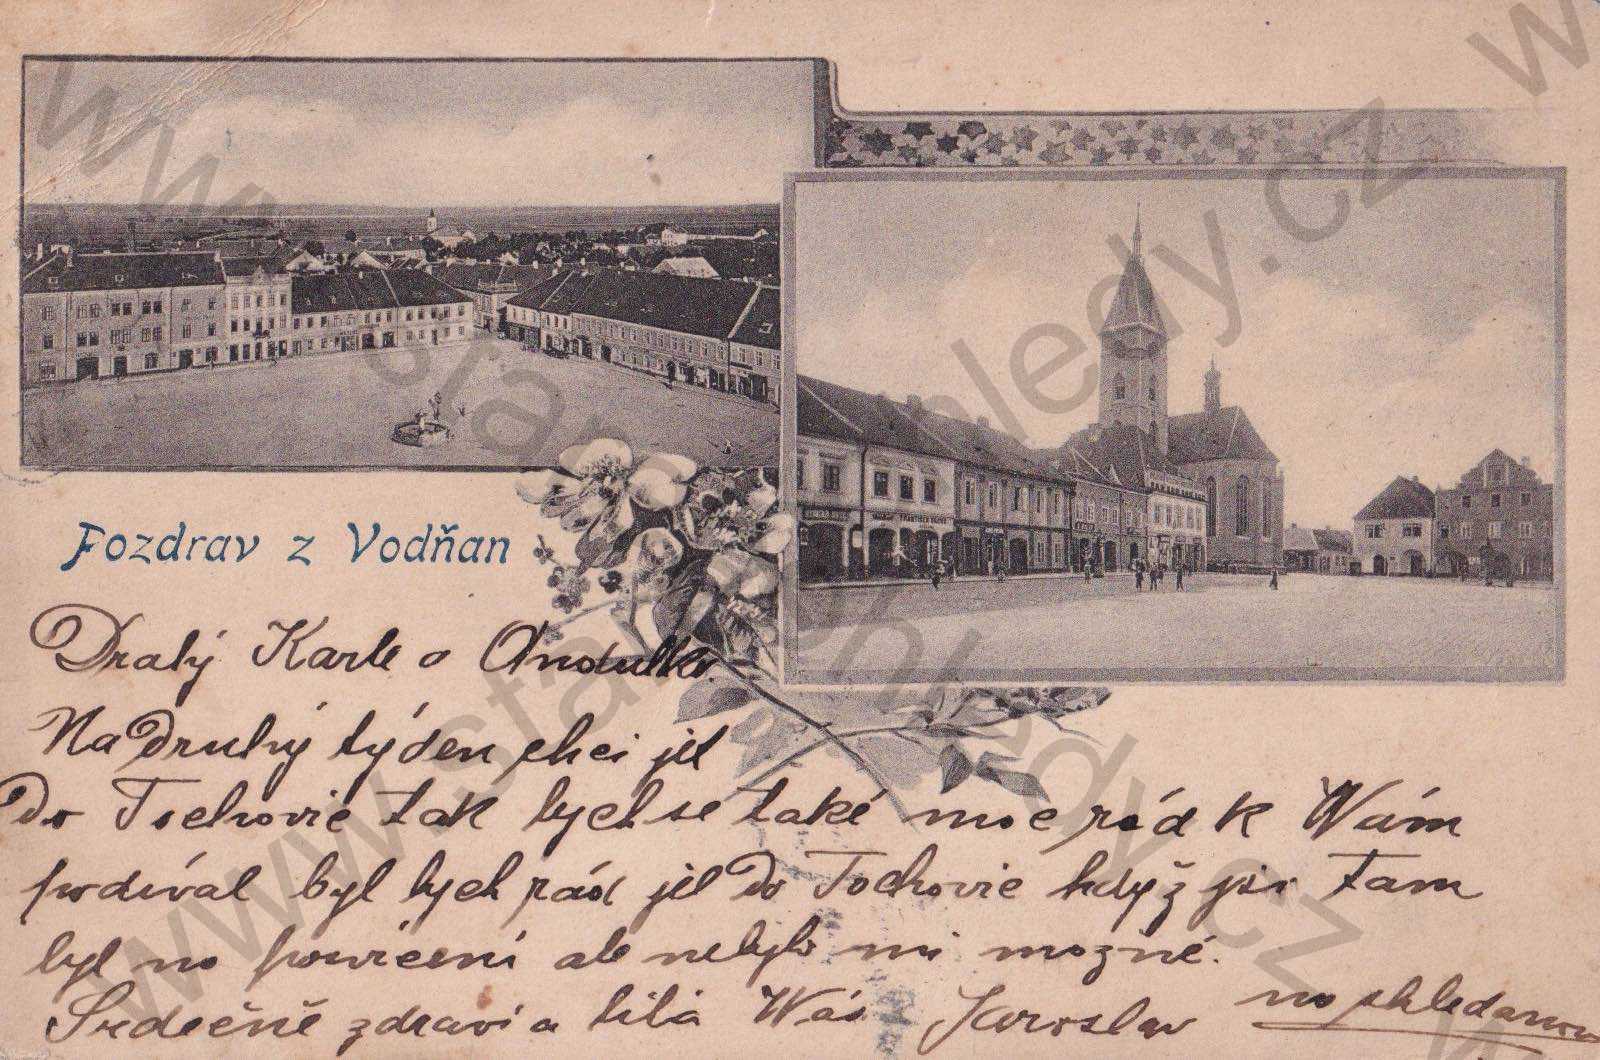 Pozdrav z Vodňan
Drahý Karle a Andulko.
Na druhý týden chci jet
do Tochovic tak bych se také moc rád k Wám
podíval byl bych rád jel do Tochovic když jsi tam
byl na posvícení ale nebylo mi možné.
Srdečně zdraví a líbá Wás Jaroslav na shledanou
www.starepohledy.cz
www.starepohledy.cz